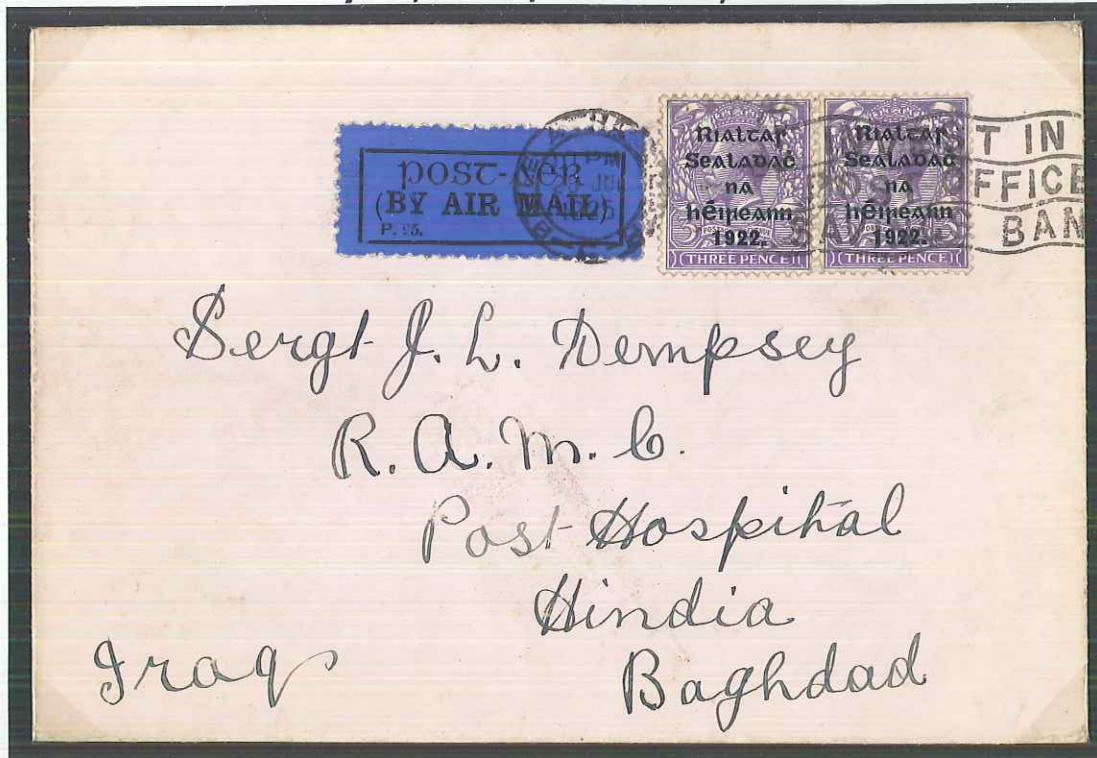 POST-AER
(BY AIR MAIL)
P. 25.
PM
25
Rialtas
Sealadaċ
na
hÉireann
1922.
THREE PENCE
Rialtas
Sealadaċ
na
hÉireann
1922.
THREE PENCE
INVEST IN
POST OFFICE
SAVINGS BAN
Sergt J. L. Dempsey
R. A. M. C.
Post Hospital
Hindia
Baghdad
Iraq